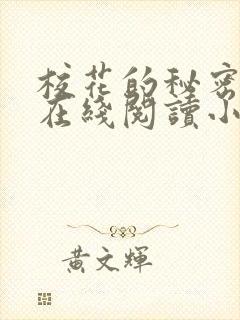 校花的秘密
在綫閱讀小
黃文輝